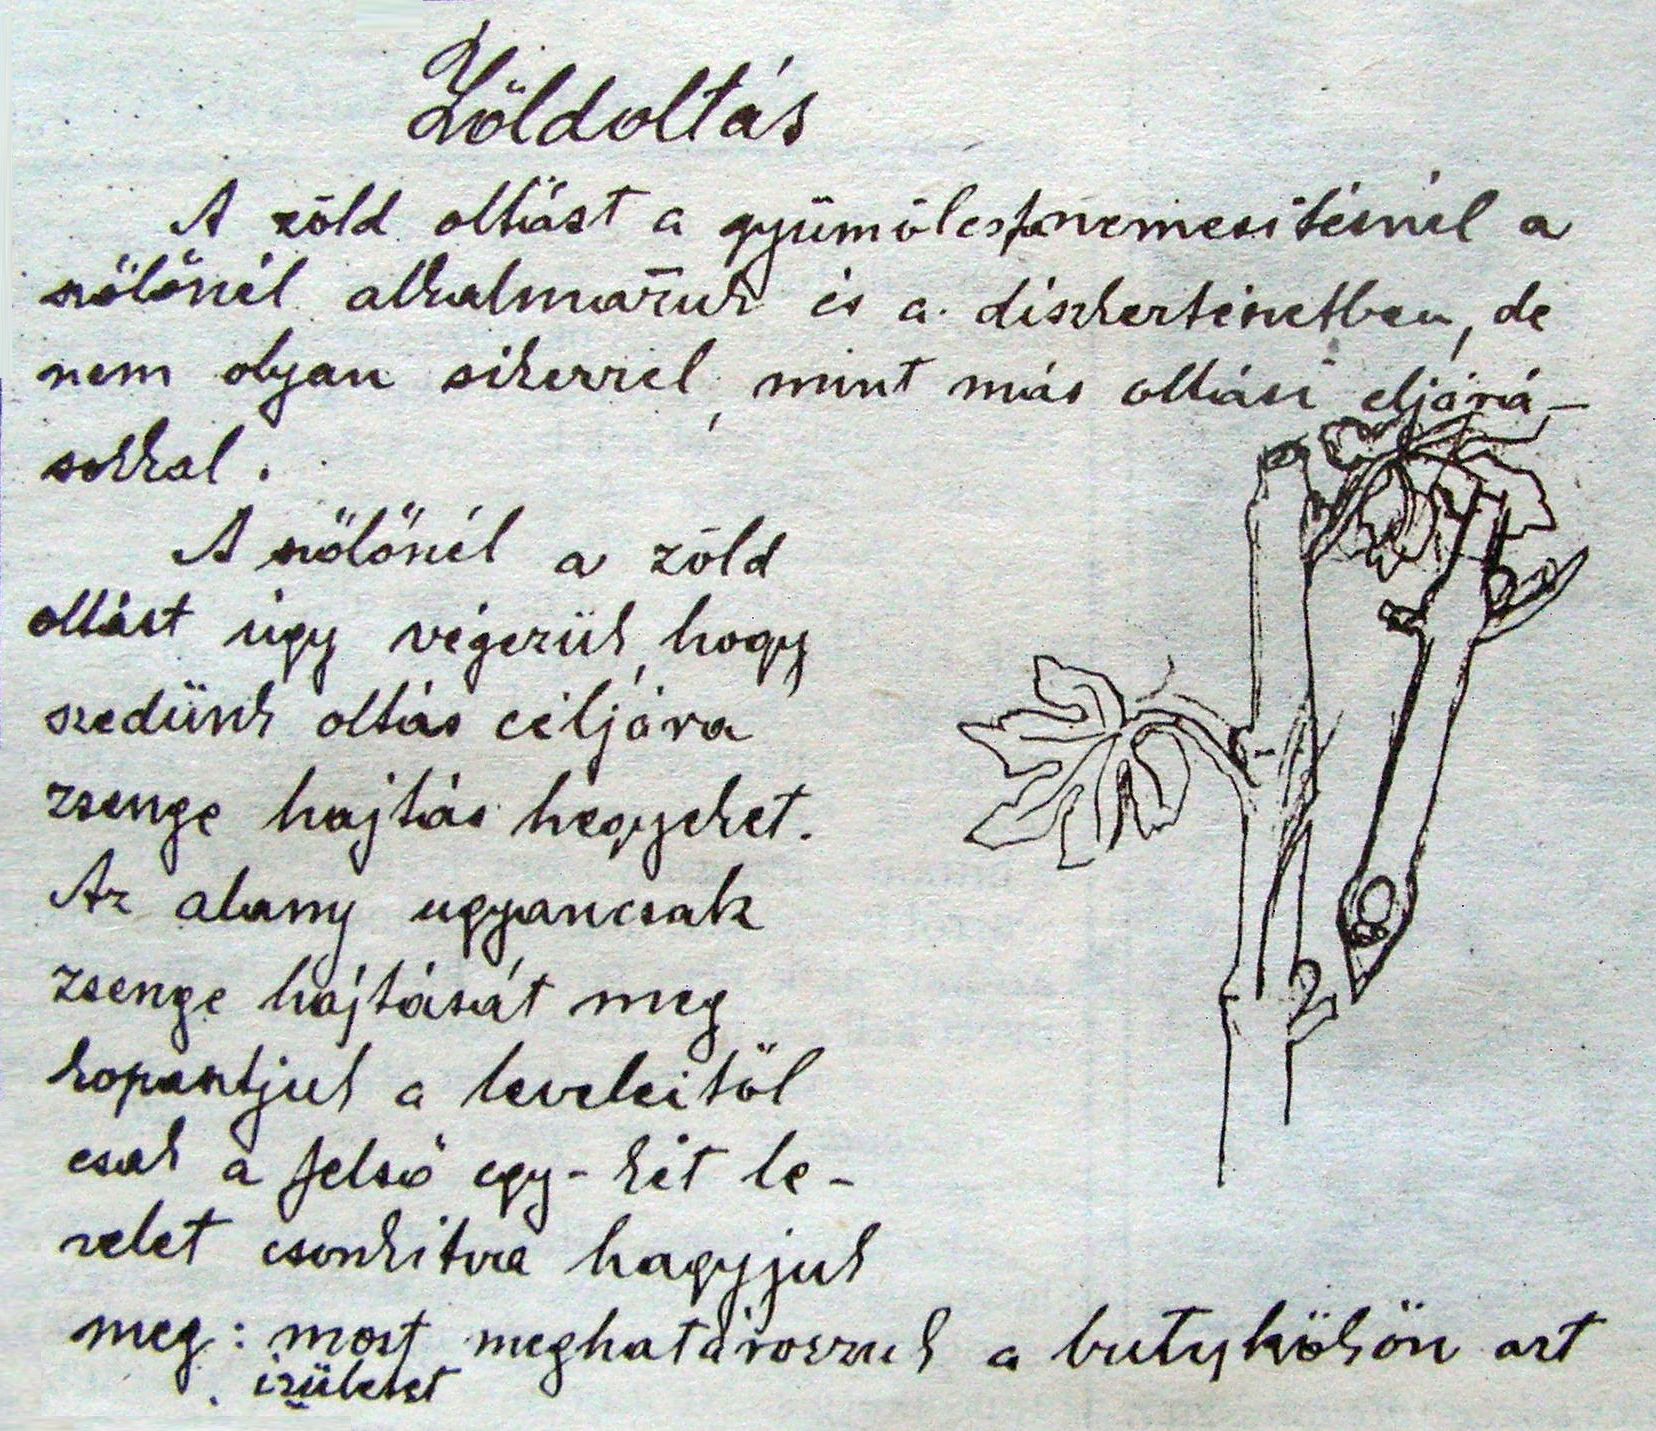 Zöldoltás
A zöld oltást a gyümölcsfanemesitésnél a
szőlőnél alkalmazzuk és a diszkertészetben, de
nem olyan sikerrel, mint más oltási eljárá-
sokkal.
A szőlőnél a zöld
oltást úgy végezzük, hogy
szedünk oltás céljára
zsenge hajtás hegyeket.
Az alany ugyancsak
zsenge hajtását meg
kopasztjuk a leveleitől
csak a felső egy-két le-
velet csonkitva hagyjuk
meg: most meghatározzuk a butykökön azt
izületet